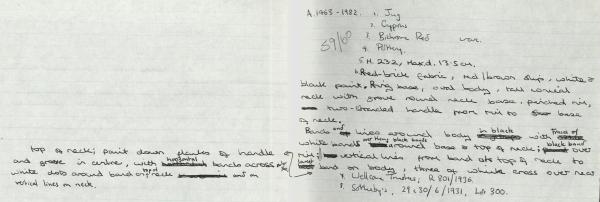 A.1963-1982. 1. Jug
2. Cyprus
3. Bichrome Red ware.
59/60
4. Pottery
5. H. 23.2, Max.d. 13.5cm.
6. Red-brick fabric, red/brown slip, white &
black paint. Ring base, oval body, tall conical
neck with groove round neck base, pinched rim,
two-stranded handle from rim to base
of neck.
Bands and lines around body in black with traces of
white bands around base & top of neck; black band over
rim; vertical lines from band at top of neck to
band on body, three of white cross over near
top of neck; paint down flanks of handle
and groove in centre, with horizontal bands across
white dots around band on neck and on
vertical lines on neck.
7. Wellcome Trustees, R 801/1936.
8. Sotheby's, 29 & 30/6/1931, Lot 300.